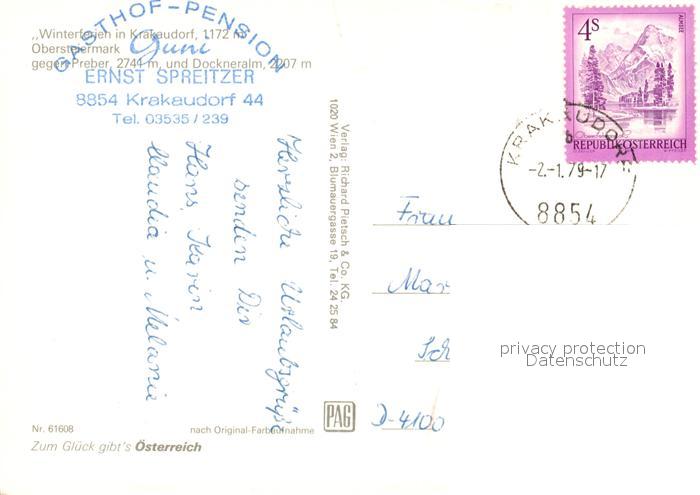 „Winterferien in Krakaudorf, 1172 m
Obersteiermark
gegen Preber, 2741 m, und Dockneralm, 2207 m
GASTHOF-PENSION
ERNST SPREITZER
8854 Krakaudorf 44
Tel. 03535/239
Herzliche Urlaubsgrüße
senden Dir
Hans, Karin
Claudia u. Melanie
Verlag: Richard Pietsch & Co. KG.
1020 Wien 2, Blumauergasse 19, Tel. 24 25 84
4S
ALMSEE
REPUBLIK ÖSTERREICH
KRAKAUDORF
-2.-1.79-17
8854
Frau
Mar
Sch
D-4100
privacy protection
Datenschutz
PAG
Nr. 61608
nach Original-Farbaufnahme
Zum Glück gibt's Österreich